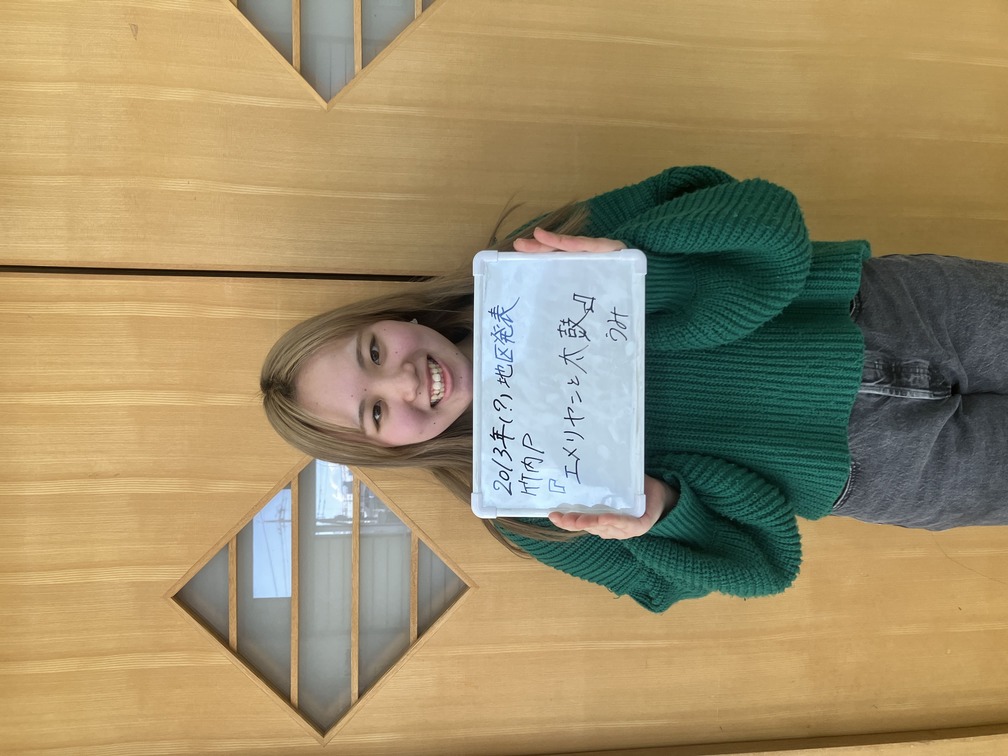 2013年(?)地区発表
竹内P
『エメリヤンと太鼓』
うみ